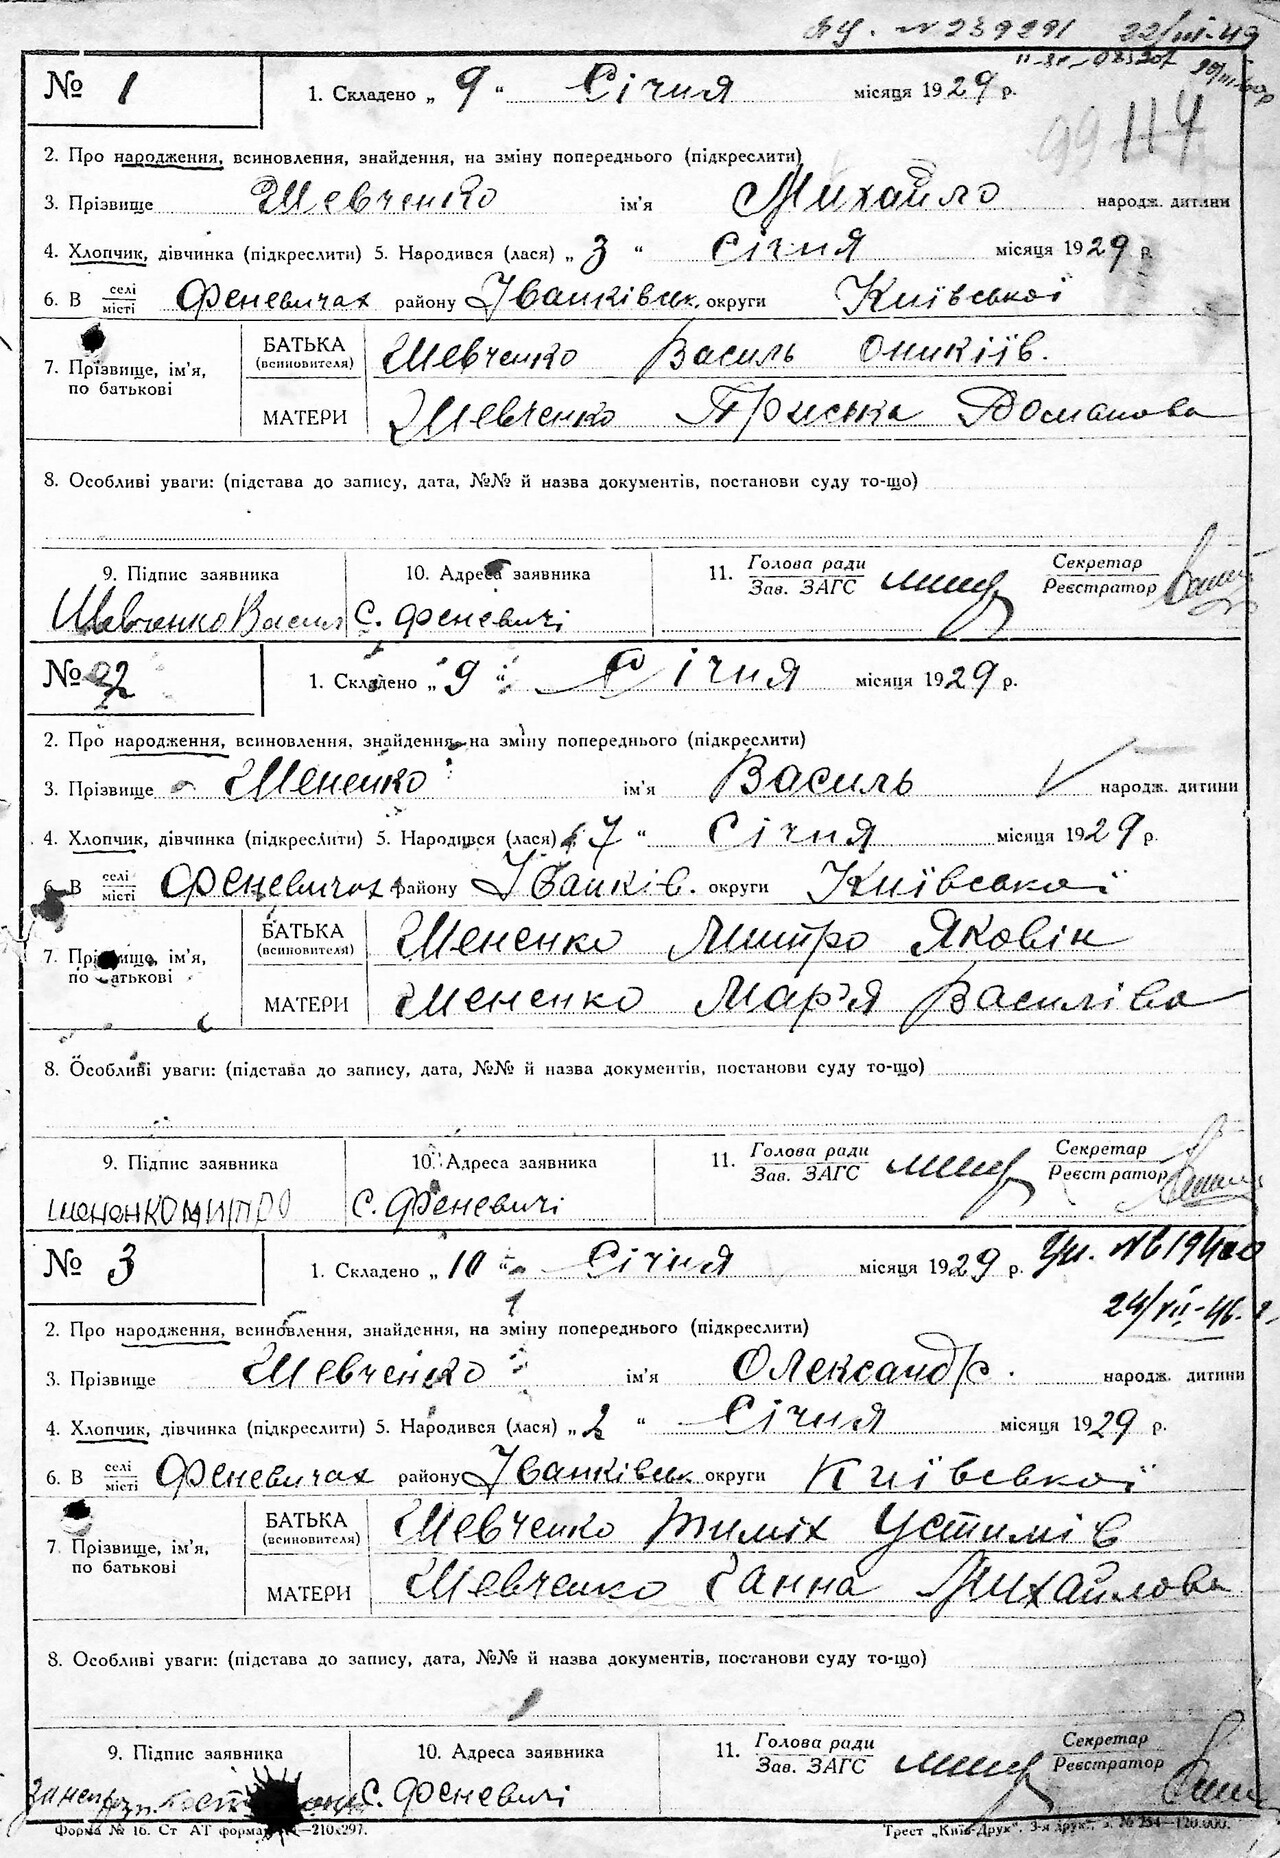 № 239291 22/III-49
№ 1 1. Складено „ 9 “ Січня місяця 1929 р.
99 114
2. Про народження, всиновлення, знайдення, на зміну попереднього (підкреслити)
3. Прізвище Шевченко ім'я Михайло народж. дитини
4. Хлопчик, дівчинка (підкреслити) 5. Народився (лася) „ 3 “ Січня місяця 1929 р.
6. В селі/місті Феневичах району Іванківськ. округи Київської
7. Прізвище, ім'я, по батькові БАТЬКА (всиновителя) Шевченко Василь Оникіїв.
МАТЕРИ Шевченко Пріська Доманова
8. Особливі уваги: (підстава до запису, дата, №№ й назва документів, постанови суду то-що)
9. Підпис заявника 10. Адреса заявника 11. Голова ради/Зав. ЗАГС Секретар/Реєстратор
Шевченко Васил с. Феневичі
№ 2 1. Складено „ 9 “ Січня місяця 1929 р.
2. Про народження, всиновлення, знайдення, на зміну попереднього (підкреслити)
3. Прізвище Шененко ім'я Василь народж. дитини
4. Хлопчик, дівчинка (підкреслити) 5. Народився (лася) „ 7 “ Січня місяця 1929 р.
6. В селі/місті Феневичах району Іванків. округи Київської
7. Прізвище, ім'я, по батькові БАТЬКА (всиновителя) Шененко Митро Яковін
МАТЕРИ Шененко Мар'я Василіва
8. Особливі уваги: (підстава до запису, дата, №№ й назва документів, постанови суду то-що)
9. Підпис заявника 10. Адреса заявника 11. Голова ради/Зав. ЗАГС Секретар/Реєстратор
шененко митро с. Феневичі
№ 3 1. Складено „ 10 “ Січня місяця 1929 р.
24/VII-46 р.
2. Про народження, всиновлення, знайдення, на зміну попереднього (підкреслити)
3. Прізвище Шевченко ім'я Олександр. народж. дитини
4. Хлопчик, дівчинка (підкреслити) 5. Народився (лася) „ 2 “ Січня місяця 1929 р.
6. В селі/місті Феневичах району Іванківськ округи Київської
7. Прізвище, ім'я, по батькові БАТЬКА (всиновителя) Шевченко Тиміх Устимів
МАТЕРИ Шевченко Ганна Михайлова
8. Особливі уваги: (підстава до запису, дата, №№ й назва документів, постанови суду то-що)
9. Підпис заявника 10. Адреса заявника 11. Голова ради/Зав. ЗАГС Секретар/Реєстратор
с. Феневичі
Форма № 16. Ст АТ форма —210x297. Трест „Київ-Друк“. 3-я друк. з. № 254—120.000.